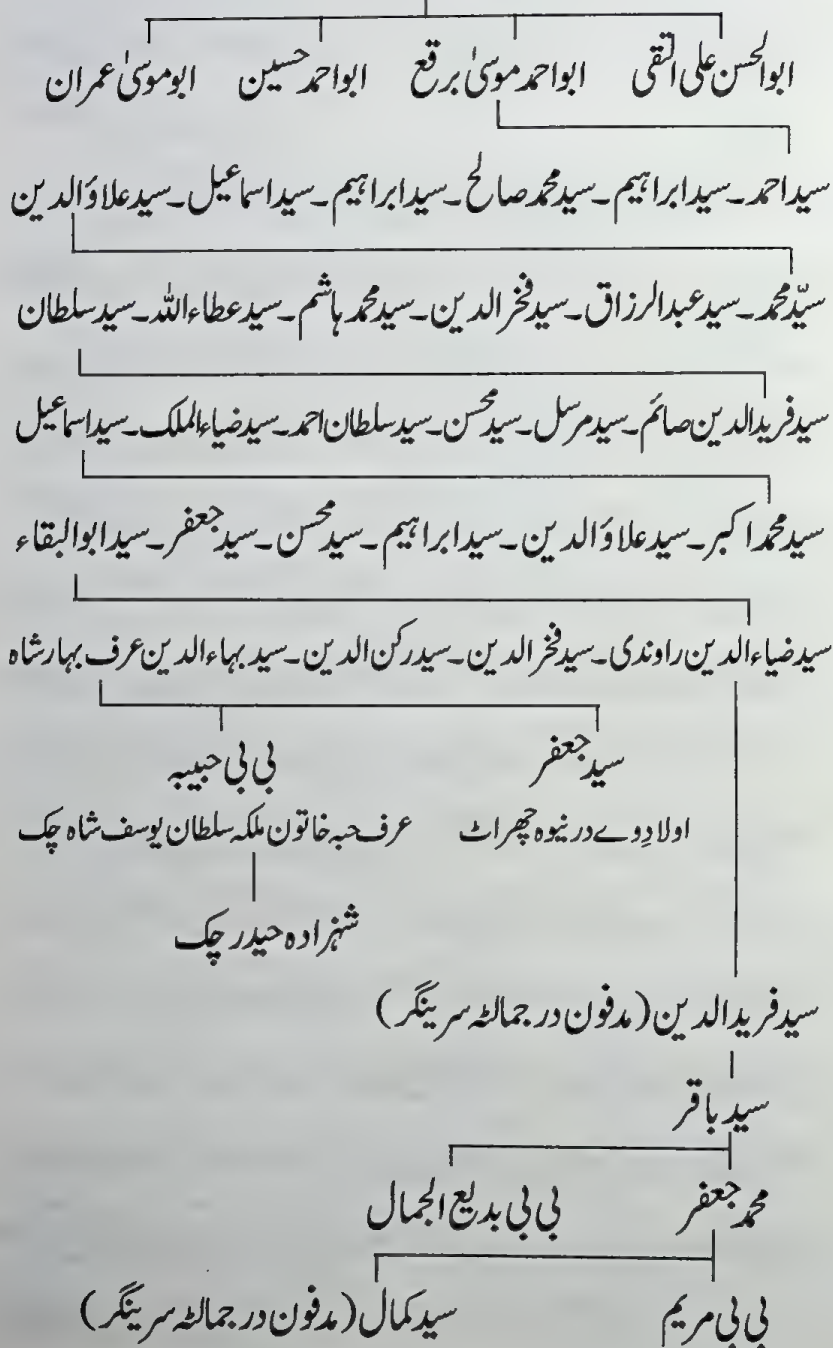 ابوالحسن علی التقی ابواحمد موسیٰ برقع ابواحمد حسین ابوموسیٰ عمران
سید احمد۔سید ابراہیم۔سید محمد صالح۔سید ابراہیم۔سید اسماعیل۔سید علاؤالدین
سیّد محمد۔سید عبدالرزاق۔سید فخرالدین۔سید محمد ہاشم۔سید عطاءاللہ۔سید سلطان
سید فریدالدین صائم۔سید مرسل۔سید محسن۔سید سلطان احمد۔سید ضیاءالملک۔سید اسماعیل
سید محمد اکبر۔سید علاؤالدین۔سید ابراہیم۔سید محسن۔سید جعفر۔سید ابوالبقاء
سید ضیاءالدین راوندی۔سید فخرالدین۔سید رکن الدین۔سید بہاءالدین عرف بہار شاہ
سید جعفر بی بی حبیبہ
اولادِ وے در نیوہ چھراٹ عرف حبہ خاتون ملکہ سلطان یوسف شاہ چک
شہزادہ حیدر چک
سید فریدالدین (مدفون در جمالٹہ سرینگر)
سید باقر
محمد جعفر بی بی بدیع الجمال
بی بی مریم سید کمال (مدفون در جمالٹہ سرینگر)